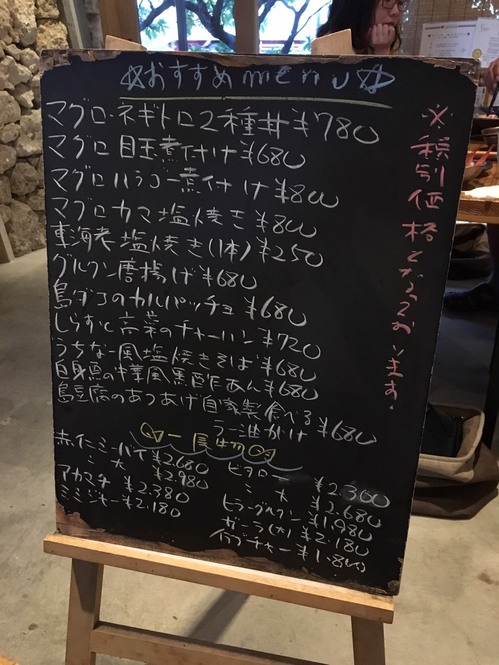 ☆おすすめmenu☆
マグロ・ネギトロ2種丼 ¥780
マグロ目玉煮付け ¥680
マグロハラゴー煮付け ¥800
マグロカマ塩焼き ¥800
車海老塩焼き(1本) ¥250
グルクン唐揚げ ¥680
島ダコのカルパッチョ ¥680
しらすと高菜のチャーハン ¥720
うちなー風塩焼きそば ¥680
白身魚の中華風黒酢あん ¥680
島豆腐のあつあげ自家製食べる
ラー油がけ ¥680
赤仁ミーバイ ¥2.680
〃 大 ¥2.980
アカマチ ¥2.380
ミミジャー ¥2.180
ヒラローカー ¥2.300
〃 大 ¥2.680
ヒラーグルクン ¥1.980
ガーラ(大) ¥2.180
イラブチャー ¥1.800
※税別価格となっております。